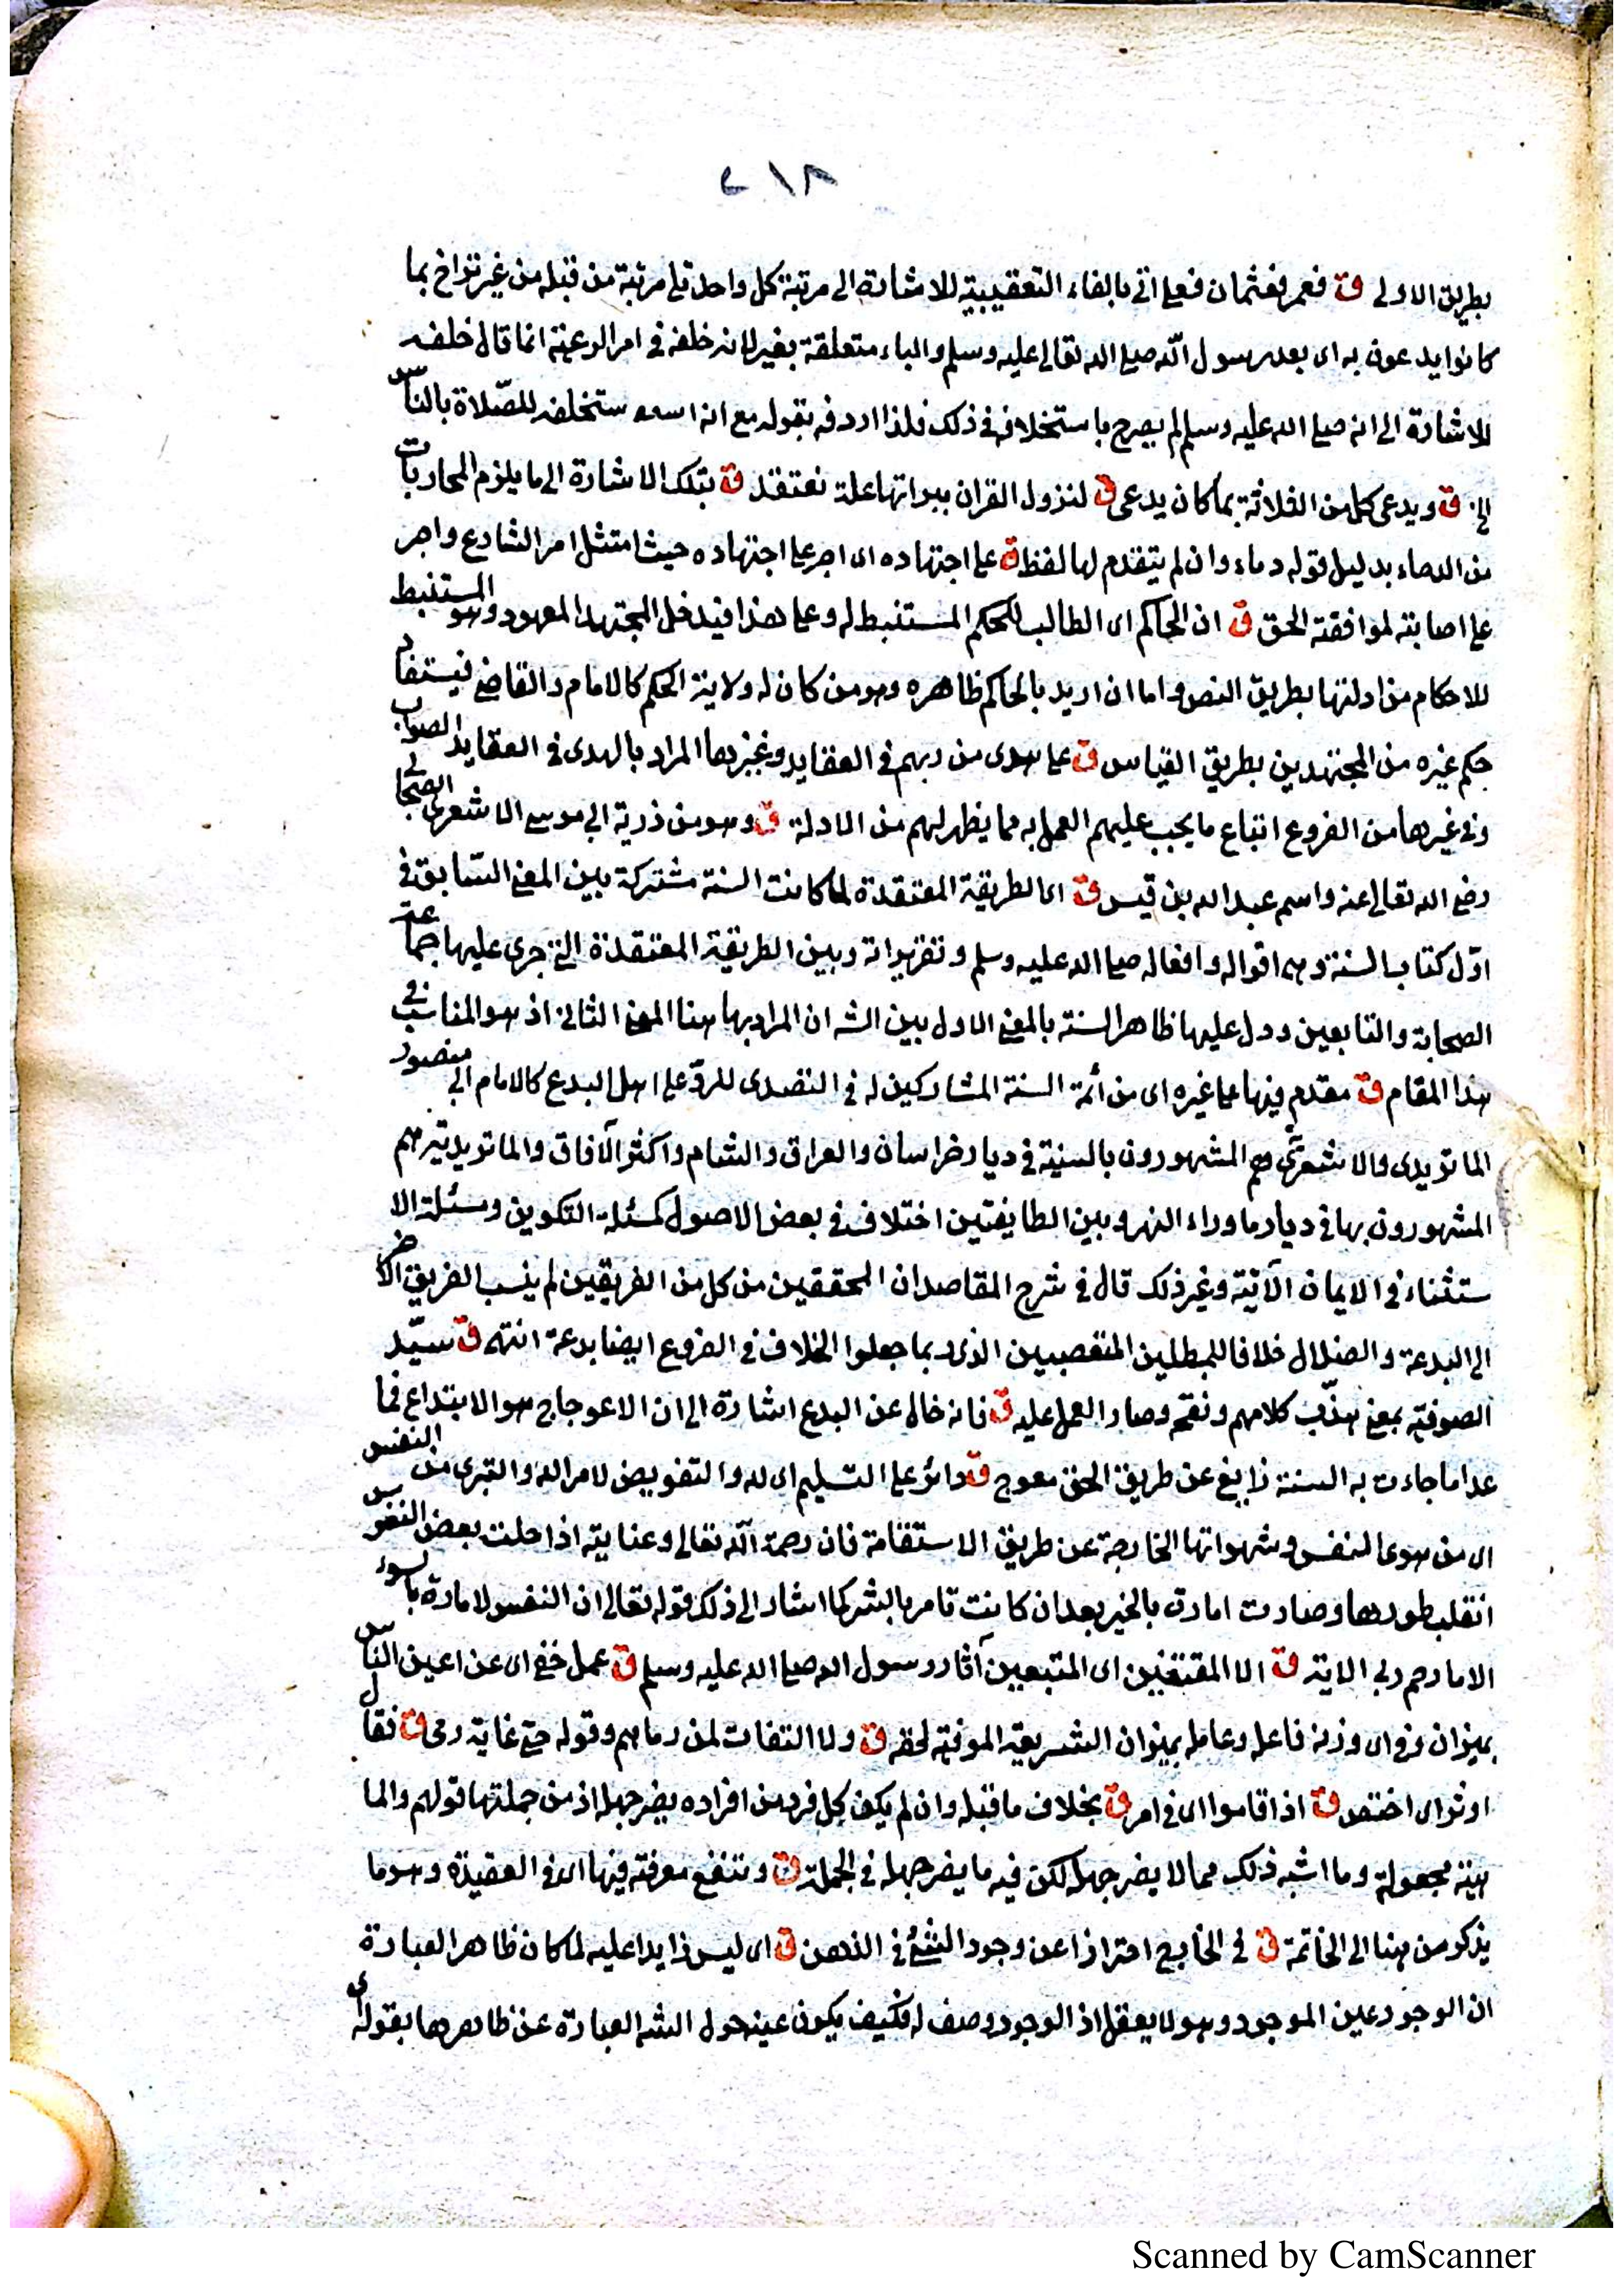 ٢١٨
بطريق الاولى ق فعمر فعثمان فعلى اتى بالفاء التعقيبية للاشارة الى مرتبة كل واحد تلى مرتبة من قبله من غير تراخ بما
كانوا يدعون به اى بعد رسول الله صلى الله تعالى عليه وسلم والباء متعلقة بغير لانه خلفه فى امر الرعية انما قال خلفه
للاشارة الى انه صلى الله عليه وسلم لم يصرح باستخلافه فى ذلك فلذا اردفه بقوله مع انه استخلفه للصّلاة بالنّاس
ق ويدعى كل من الثلاثة بما كان يدعى ق لنزول القران ببراتها علة نعتقد ق بتلك الاشارة الى ما يلزم المحاربات
من الدماء بدليل قوله دماء وان لم يتقدم لها لفظ ق على اجتهاده اى اجر على اجتهاده حيث امتثل امر الشارع واجر
على اصابته لموافقته الحق ق ان الحاكم اى الطالب للحكم المستنبط له وعلى هذا فيدخل المجتهد المعهود وهو المستنبط
للاحكام من ادلتها بطريق النص واما ان اريد بالحاكم ظاهره وهو من كان له ولاية الحكم كالامام والقاضى فيستفاد
حكم غيره من المجتهدين بطريق القياس ق على هدى من ربهم فى العقايد وغيرها المراد بالهدى فى العقايد الصواب
وفى غيرها من الفروع اتباع ما يجب عليهم العمل به مما يظهر لهم من الادلة ق وهو من ذرية ابى موسى الاشعرى الصحابى
رضى الله تعالى عنه واسمه عبد الله بن قيس ق اى الطريقة المعتقدة لما كانت السنة مشتركة بين المعنى السّابق فى
اوّل كتاب السنة وهى اقواله وافعاله صلى الله عليه وسلم وتقريراته وبين الطريقة المعتقدة التى جرى عليها جماعة
الصحابة والتابعين ودل عليها ظاهر السنة بالمعنى الاول بين الشه ان المراد بها هنا المعنى الثانى اذ هو المناسب فى
هذا المقام ق مقدم فيها على غيره اى من أئمة السنة المشاركين له فى التصدى للردّ على اهل البدع كالامام ابى منصور
الماتريدى والاشعرىّ هم المشهورون بالسنية فى ديار خراسان والعراق والشام واكثر الآفاق والماتريديّة هم
المشهورون بها فى ديار ما وراء النهر وبين الطايفتين اختلاف فى بعض الاصول كمسئلة التكوين ومسئلة الا
ستثناء فى الايمان الآتية وغير ذلك قال فى شرح المقاصد ان المحققين من كل من الفريقين لم ينسب الفريق الاخر
الى البدعة والضلال خلافا للمبطلين المتعصبين الذى ربما جعلوا الخلاف فى الفروع ايضا بدعة انتهى ق سيّد
الصوفية بمعنى هذّب كلامهم ونقحه وصار العمل عليه ق فانه خال عن البدع اشارة الى ان الاعوجاج هو الابتداع فما
عدا ما جاءت به السنة زايغ عن طريق الحق معوج ق دائر على التسليم اى لله والتفويض لامر الله والتبرى من النفس
اى من هوى النفس وشهواتها الخارجة عن طريق الاستقامة فان رحمة الله تعالى وعنايته اذا حلت بعض النفوس
انقلب طورها وصارت امارة بالخير بعد ان كانت تامر بالشر كما اشار الى ذلك قوله تعالى ان النفس لامارة بالسوء
الا ما رحم ربى الاية ق الا المقتفين اى المتبعين آثار رسول الله صلى الله عليه وسلم ق عمل خفى اى عن اعين النّاس
بميزان وفى اى وزنه فاعله وعامله بميزان الشريعة الموفية لحقه ق ولا التفات لمن رماهم وقوله حتى غاية رمى ق فقال
اوثر اى اختص ق اذ اقاموا اى فى امر ق بخلاف ما قبله وان لم يكن كل فرد من افراده يضر جهله اذ من جملتها قولهم والما
هية مجعولة وما اشبه ذلك مما لا يضر جهله لكن فيه ما يضر جهله فى الجملة ق وتنفع معرفته فيها اى فى العقيدة وهو ما
يذكر من هنا الى الخاتمة ق فى الخارج احترازا عن وجود الشئ فى الذهن ق اى ليس زايدا عليه لما كان ظاهر العبارة
ان الوجود عين الموجود وهو لا يعقل اذ الوجود وصف له فكيف يكون عينه حول الشه العبارة عن ظاهرها بقوله اى
Scanned by CamScanner